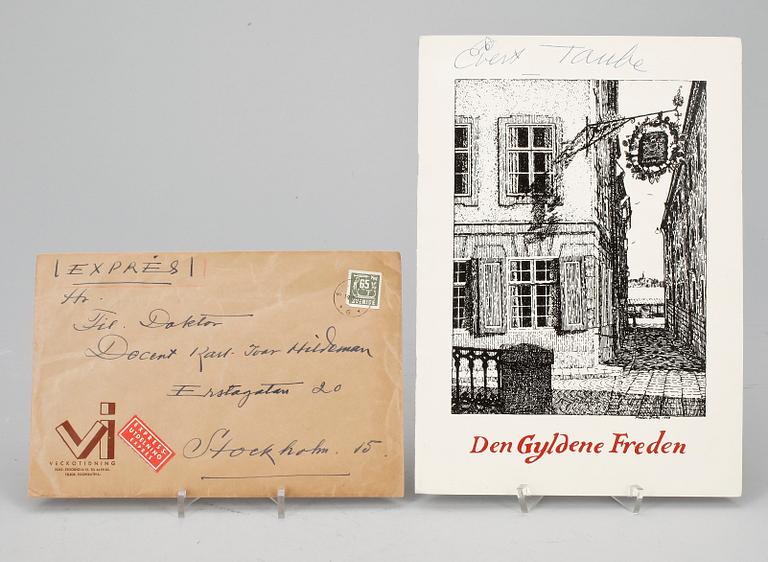 Evert Taube
Den Gyldene Freden
EXPRÈS
Hr.
Fil. Doktor
Docent Karl-Ivar Hildeman
Erstagatan 20
Stockholm. 15.
65
SVERIGE
vi
VECKOTIDNING
EXPRESS-
UTDELNING
EXPRÈS